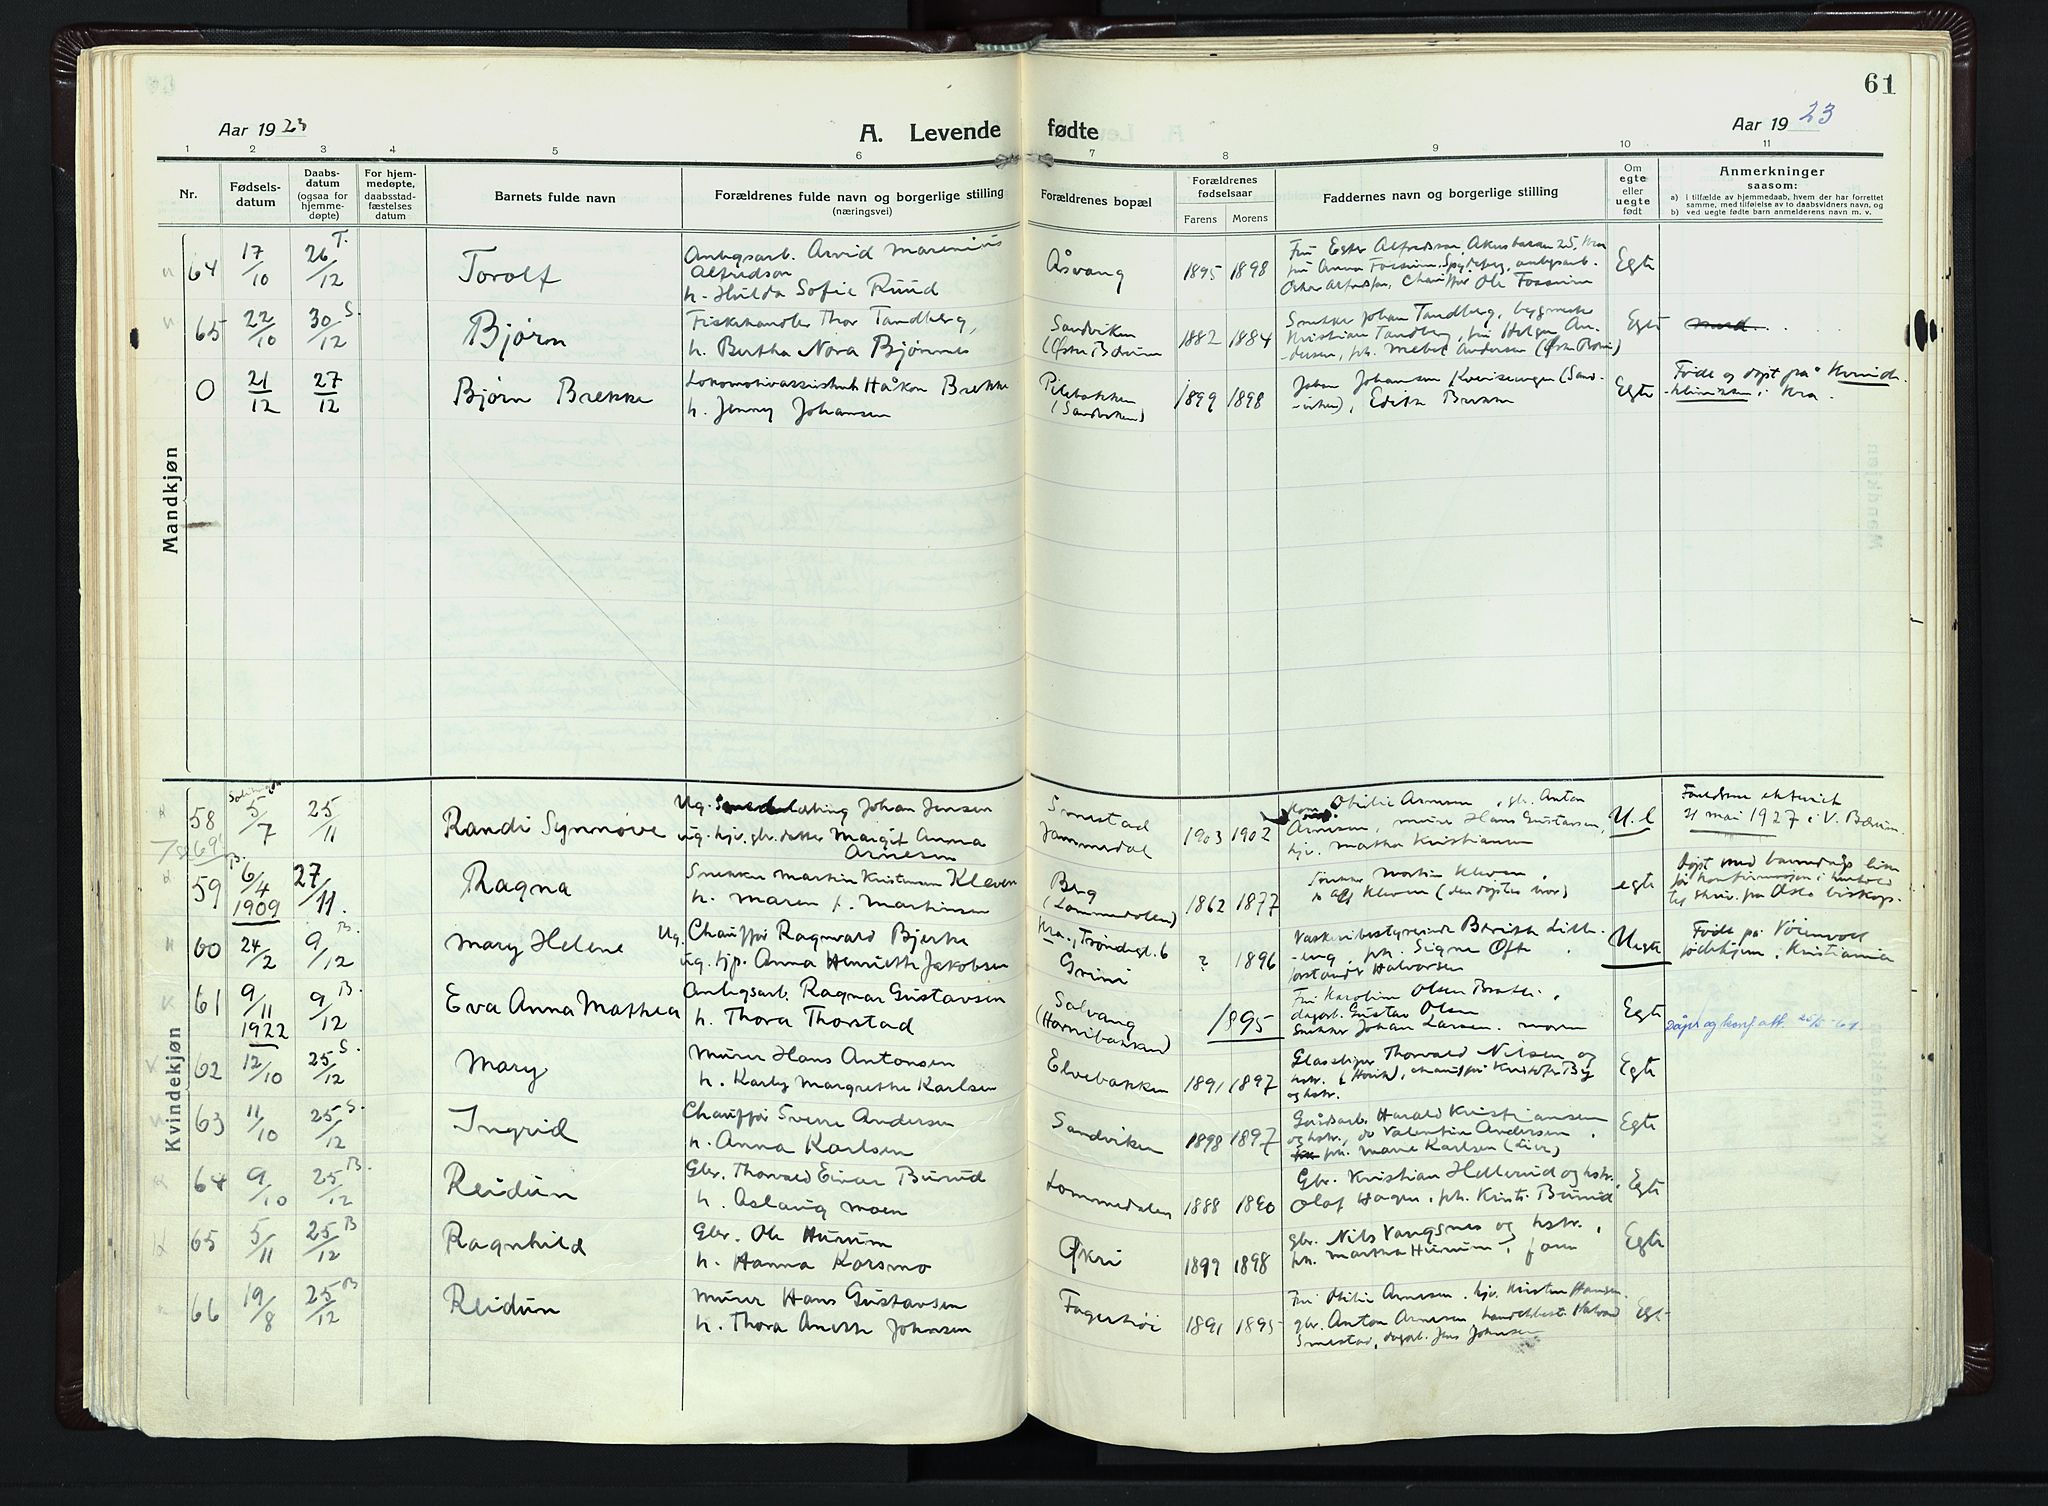 61
Aar 1923
A. Levende fødte
Aar 1923
1 2 3 4 5 6 7 8 9 10 11
Nr.
Fødsels-
datum
Daabs-
datum
(ogsaa for
hjemme-
døpte)
For hjem-
medøpte,
daabsstad-
fæstelses
datum
Barnets fulde navn
Forældrenes fulde navn og borgerlige stilling
(næringsvei)
Forældrenes bopæl
Forældrenes
fødselsaar
Farens Morens
Faddernes navn og borgerlige stilling
Om
egte
eller
uegte
født
Anmerkninger
saasom:
a) i tilfælde av hjemmedaab, hvem der har forrettet
samme, med tilføielse av to daabsvidners navn, og
b) ved uegte fødte barn anmelderens navn m. v.
Mandkjøn
64 17/10 26/12 T. Torolf
Anlegsarb. Arvid Marenius
Alfredson
h. Hulda Sofie Ruud
Åsvang 1895 1898
Fru Ester Alfredson
Oskar Alfredson, Chauffør Ole Fossum
Egte
65 22/10 30/12 S. Bjørn
Fiskehandler Thor Tandberg,
h. Bertha Nora Bjønnes
Sandviken
(Østre Bærum
1882 1884
Snekker Johan Tandberg, bygmester
Kristian Tandberg, fru Helga An-
dersen, frk. Mebel Andersen
Egte
0 21/12 27/12 Bjørn Brekke
Lokomotivassistent Håkon Brekke
h. Jenny Johansen
Pilebakken
(Sandviken)
1899 1898
Johan Johansen (Sand-
-viken), Edith Brekke
Egte
Føde og døpt på Kvinde-
-klinikken i Kra.
Kvindekjøn
58 5/7 25/11 Randi Synnøve
Ug. Johan Jensen
ug. hjv. gbr. datter Margit Anna
Arnesen
Smestad
Jammerdal
1903 1902
Othilie Arnesen, gbr. Anton
Arnesen, murer Hans Gustavsen,
hjv. Martha Kristiansen
U.e
Foreldrene ektevied
21 mai 1927 i V. Bærum.
59 6/4 1909 27/11. Ragna
Snekker Martin Kristiansen Kleven
h. Maren f. Martinsen
Berg
(Lommedalen)
1862 1877
Snekker Martin Kleven,
Kleven (den døptes mor)
egte
Døpt med
før konfirmasjonen i henhold
til skriv. fra Oslo biskop.
60 24/2 9/12 B. Mary Helene
Ug. Chauffør Ragnvald Bjerke
ug. tjp. Anna Henriette Jakobsen
Kra., Trondhgt. 6
Grini
? 1896
Vaskeribestyrerinde
frk. Signe
forstander Halvorsen
Uegte
Føde på
fødehjem, Kristiania
61 9/11 1922 9/12 B. Eva Anna Mathea
Anlegsarb. Ragnar Gustavsen
h. Thora Thorstad
Solvang
1895
Fru Karoline Olsen
dagarb. Gustav Olsen
Snekker Johan Larsen. moren
Egte
Dåps og konf. att. 25/5-64
62 12/10 25/12 S. Mary
Murer Hans Antonsen
h. Karly Margrethe Karlsen
Elvebakken 1891 1897
Thorvald Nilsen og
hstr., chauffør Kristofer By
og hstr.
Egte
63 11/10 25/12 S. Ingrid
Chauffør Sverre Andersen
h. Anna Karlsen
Sandviken 1898 1897
Gårdsarb. Harald Kristiansen
og hstr., do Valentin Andersen,
frk. Marie Karlsen
Egte
64 9/10 25/12 B. Reidun
Gbr. Thorvald Einar Burud
h. Aslaug Moen
Lommedalen 1888 1890
Gbr. Kristian Hellerud og hstr.,
Olaf Hagen, frk. Kristi Burud
Egte
65 5/11 25/12 B Ragnhild
Gbr. Ole Hurum
h. Hanna Korsmo
Økri 1899 1898
gbr. Nils Vangsnes og hstr.,
frk. Martha Hurum, faren
Egte
66 19/8 25/12 B Reidun
Murer Hans Gustavsen
h. Thora Anette Johnsen
Fagerhøi 1891 1895
Fru Othilie Arnesen, hjv. Kirsten Hansen
gbr. Anton Arnesen, handelsbest. Halvard
Smestad, dagarb. Jens Johnsen
Egte